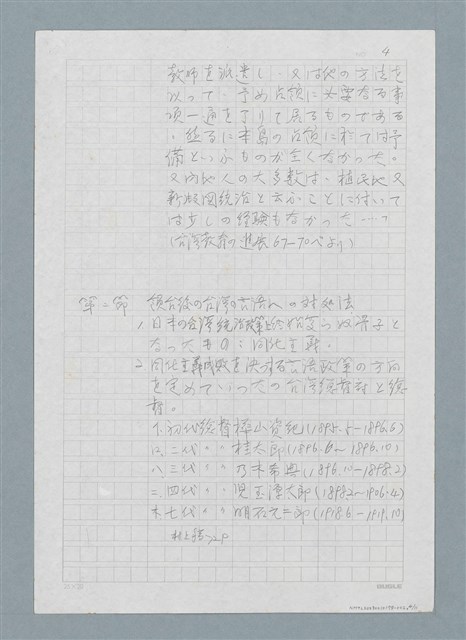 4
教師を派遣し、又は他の方法を
以って、予め占領に必要なる事
項一通を了りて居るものである
。然るに本島の占領に於ては予
備といふものが全くなかった。
又内地人の大多数は、植民地又
新版図統治と云ふことに付いて
は少しの経験もなかった…"
(台湾教育の進展67-70ペより)
第二節 領台後の台湾の言語への対処法
1. 日本の台湾統治政策と始終
なった もの：同化主義。
2. 同化主義 を決 する言語政策の方向
を定めていった の台湾総督府と総
督。
イ.初代総督樺山資紀(1895.5-1896.6)
ロ.二代〃〃桂太郎(1896.6~1896.10)
ハ.三代〃〃乃木希典(1896.10-1898.2)
ニ.四代〃〃児玉源太郎(1898.2~1906.4)
ホ.七代〃〃明石元二郎(1918.6-1919.10)